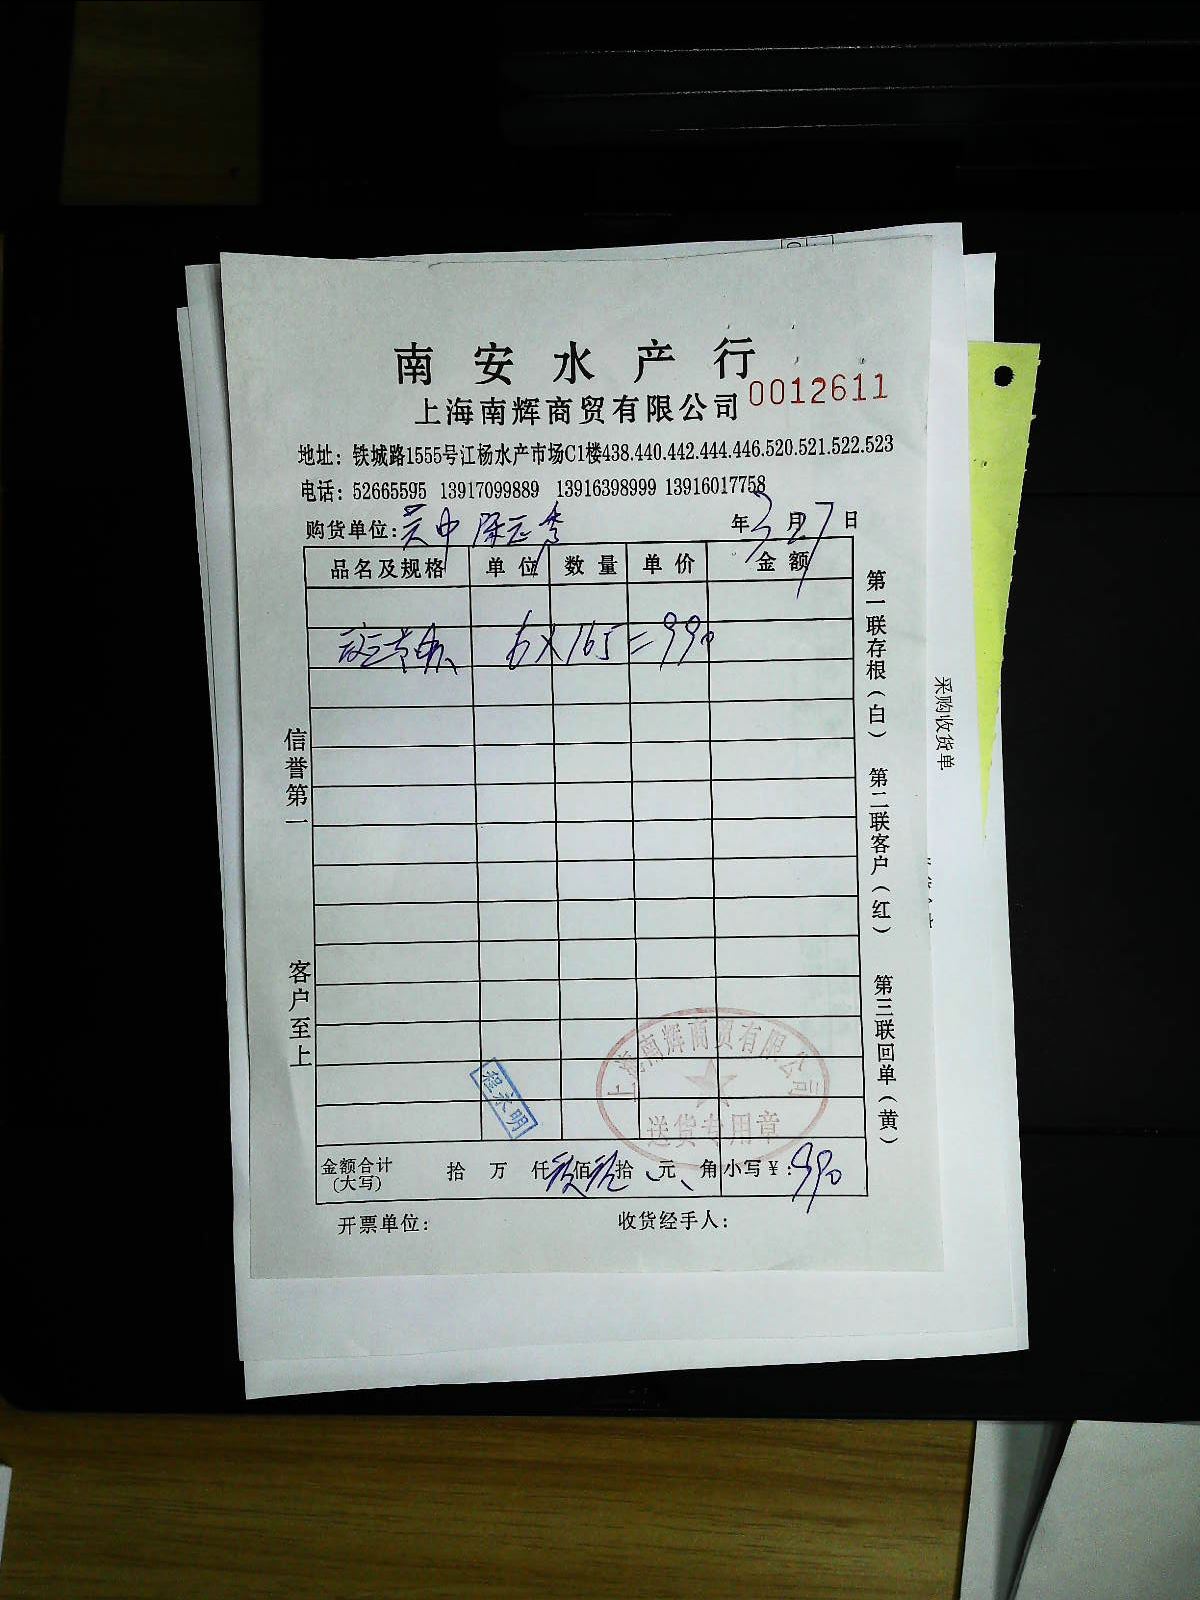 南安水产行
上海南辉商贸有限公司 0012611
地址：铁城路1555号江杨水产市场C1楼438.440.442.444.446.520.521.522.523
电话：52665595 13917099889 13916398999 13916017758
购货单位： 年3月27日
品名及规格 单位 数量 单价 金额
6×165=990
信誉第一
客户至上
第一联存根（白）
第二联客户（红）
第三联回单（黄）
上海南辉商贸有限公司
送货专用章
程永明
金额合计（大写） 拾 万 仟 玖佰玖拾 元 角 小写¥：990
开票单位： 收货经手人：
采购收货单